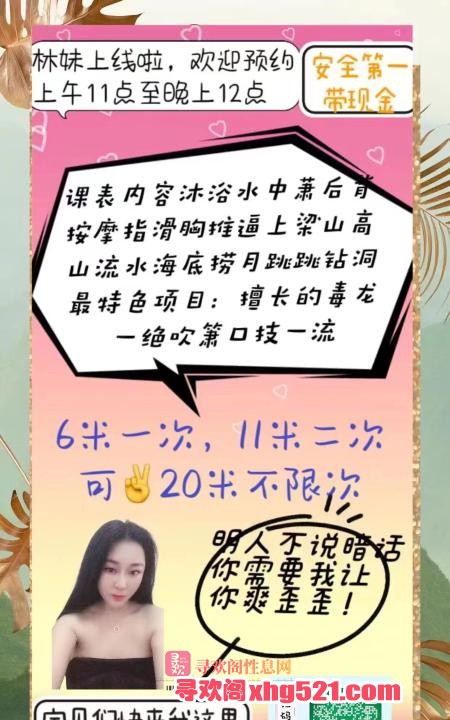 林妹上线啦，欢迎预约
上午11点至晚上12点
安全第一
带现金
课表内容沐浴水中萧后背
按摩指滑胸推逼上梁山高
山流水海底捞月跳跳钻洞
最特色项目：擅长的毒龙
一绝吹箫口技一流
6米一次，11米二次
可✌20米不限次
明人不说暗话
你需要我让
你爽歪歪！
寻欢阁性息网
寻欢阁xhg521.com